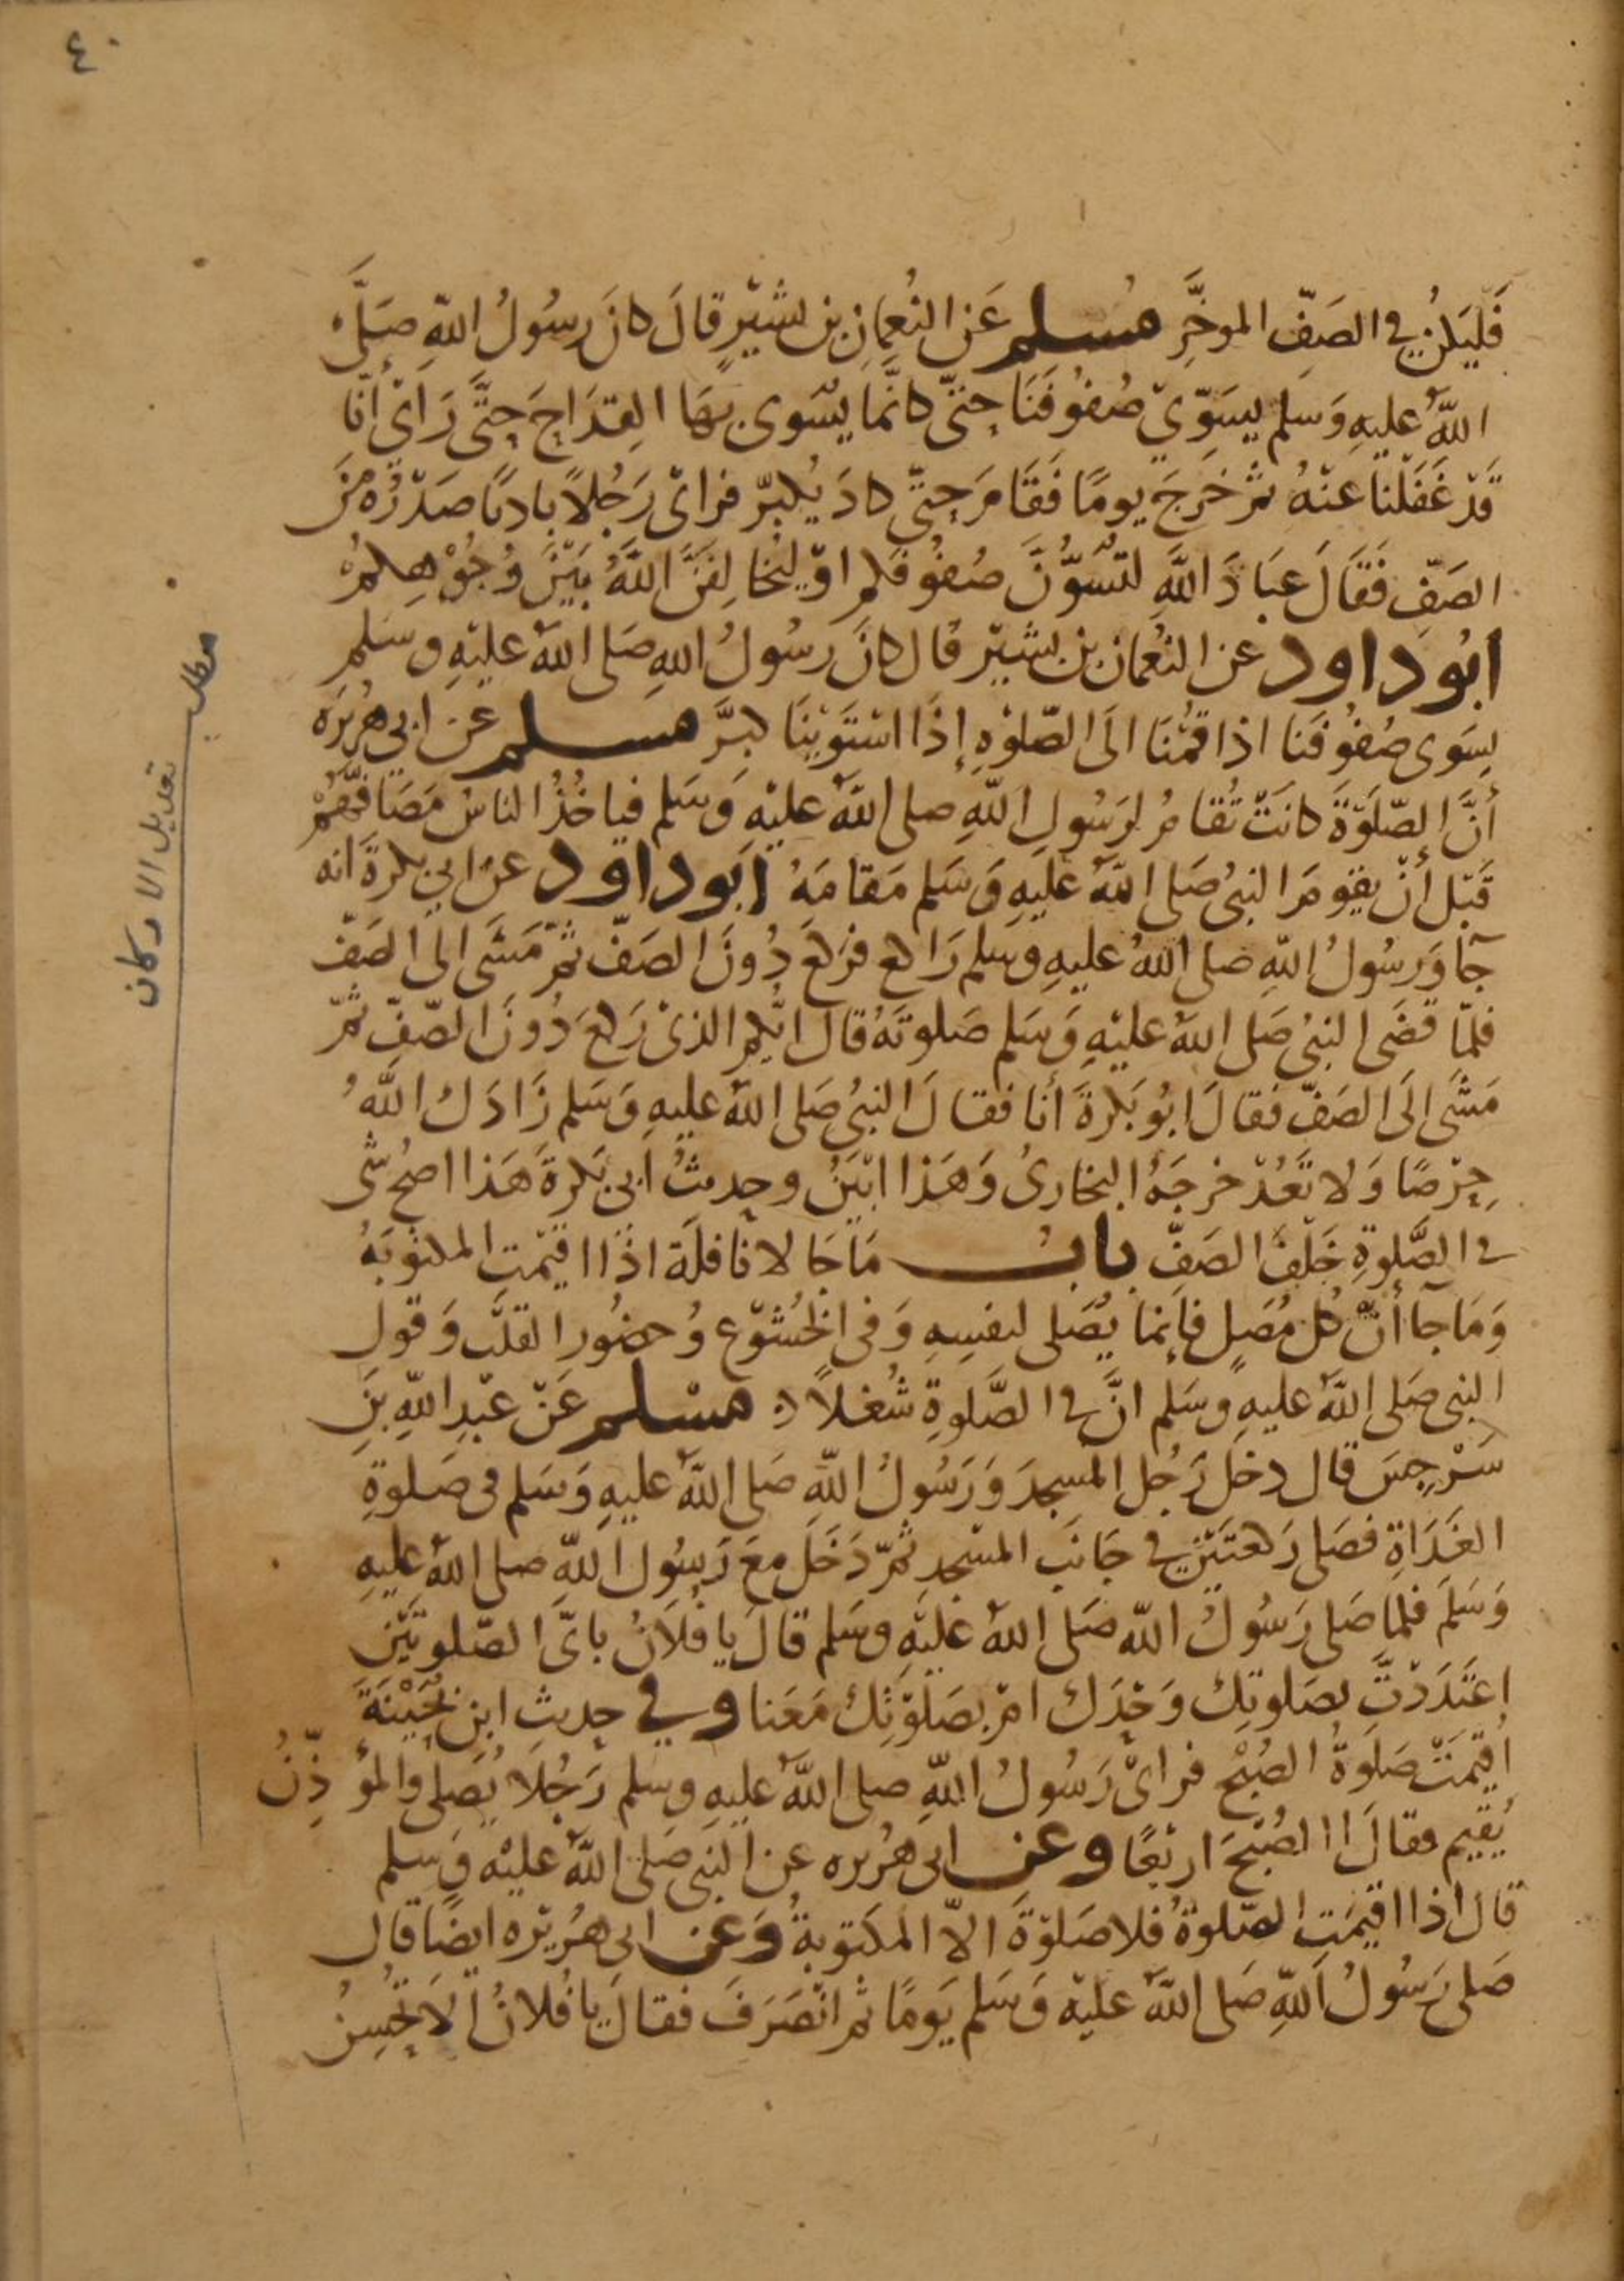 ٤٠
فَليَكُنْ في الصَفِّ الموخَّرِ مُسلم عَن النُعمانِ بن بشيْرٍ قالَ كانَ رسُولُ اللهِ صَلَّى
اللهُ عليهِ وَسَلم يسَوِّي صُفُوفَنَا حتىّ كانَّمَا يسّوى بهَا القِدَاحَ حتَّى رَاىْ أنّا
قَدْ غَفَلْنا عنْهُ ثمْ خَرجَ يومًا فَقَامَ حتىّ كادَ يُكبرّ فراىْ رَجُلاً بادئًا صَدْرُهُ مِنَ
الصَفِّ فَقَالَ عبَادَ اللهِ لتسَوُّنَّ صُفوُفكم اوْ ليخالِفَنَّ اللهُ بَيْنَ وُجُوْهِكمُ
ابُو داود عن النُعمان بن بشيْر قال كانَ رسُولُ اللهِ صَلى اللهُ عليْهِ وسَلم
يسَوى صُفوُفَنا اذا قمُنَا الىَ الصّلوٰةِ إذَا اسْتَوَيْنَا كبَّرَ مسلم عن ابي هُرَيْرَة
أنَّ الصّلوَٰةَ كانَتْ تُقامُ لرَسُولِ اللهِ صلى اللهُ عليْهِ وَسَلم فياخُذُ الناسُ مَصَافَّهُمْ
قَبْل أنْ يقوُمَ النبىُ صَلى اللهُ عَليَهِ وَسَلم مَقامَهُ ابَو داود عن ابي بكرةَ انه
جآ وَرسُولُ اللهِ صلى اللهُ عليهِ وسَلم رَاكع فرَكَعَ دُونَ الصَفّ ثمّ مَشَى الى الصَفّ
فلمّا قضَى النبىُ صَلى اللهُ عليْهِ وَسَلم صَلوتَهُ قالَ ايُّكمُ الذىْ رَكعَ دُونَ الصّفِّ ثمّ
مَشَى الىَ الصَفّ فقالَ ابُو بَكرةَ أنا فقالَ النبىُ صَلى اللهُ عليهِ وَسَلم زَادَكَ اللهُ
حِرْصًا وَلا تَعُدْ خرجَهُ البخارىُ وَهَذا ابْيَنُ وحديثُ ابىْ بَكرةَ هَذا اصحُ شَى
في الصَّلوةِ خَلْفَ الصَفِّ باب مَا جَا لا نافلَة اذَا اقيْمتِ المكتوُبَةُ
وَمَا جآ أنّ كلّ مُصَلٍ فإنمَا يُصَلى لنفسِهِ وَفى الخُشُوْعِ وُحضُورِ القلَّب وَقولِ
النبى صَلى اللهُ عليهِ وسَلم انَّ في الصَّلوةِ شُغلاً مسْلم عَنْ عبْدِ اللهِ بنِ
سَرْجِسَ قال دخلَ رَجُل المسجدَ وَرَسُولُ اللهِ صَلى اللهُ عليهِ وَسَلم فى صَلوةِ
الغَدَاةِ فصَلى رَكعَتَيْنِ في جَانبِ المسْجدِ ثمّ دَخَلَ معَ رَسُولِ اللهِ صلى اللهُ عليهِ
وَسَلمَ فلمّا صَلى رَسُولُ اللهِ صَلى اللهُ عَليْهِ وسَلم قالَ يا فلاَنُ باىّ الصّلوتيْن
اعتَدَدْتَّ بصَلوتِك وَحْدَك امْ بصَلوْتِكَ مَعَنا وفي حديثِ ابن بُحَيْنَةَ
اُقيْمَتْ صَلوَةُ الصُبْحِ فراىْ رَسُولُ اللهِ صلى اللهُ عليهِ وسلم رَجُلاَ يُصَلى والمؤذِّنُ
يُقيم فقالَ االصُبْحَ ارْبَعًا وعن ابى هُريره عن النبى صَلى اللهُ عليْهِ وَسلم
قال اذا اقيمَتِ الصّلوةُ فلا صَلوْةَ الاّ المكتوبةُ وَعن ابى هُريْره ايضًا قال
صَلى رَسُولُ اللهِ صَلى اللهُ عليْهِ وَسَلم يَومًا ثم انْصَرَفَ فقالَ يا فُلانُ الاَ تُحْسِنُ
مطلب
تعديل الاركان